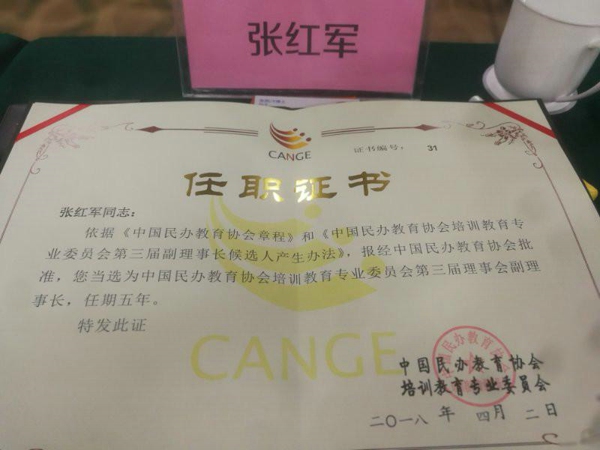 张红军
CANGE
证书编号： 31
任职证书
张红军同志：
依据《中国民办教育协会章程》和《中国民办教育协会培训教育专
业委员会第三届副理事长候选人产生办法》，报经中国民办教育协会批
准，您当选为中国民办教育协会培训教育专业委员会第三届理事会副理
事长，任期五年。
特发此证
CANGE
中国民办教育协会
培训教育专业委员会
二〇一八 年 四月 二日